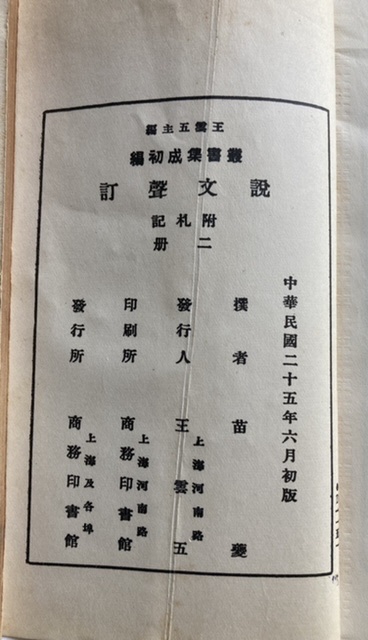 王雲五主編
叢書集成初編
說文聲訂
附札記
二册
中華民國二十五年六月初版
撰者 苗夔
發行人 王雲五
上海河南路
印刷所 商務印書館
上海河南路
發行所 商務印書館
上海及各埠